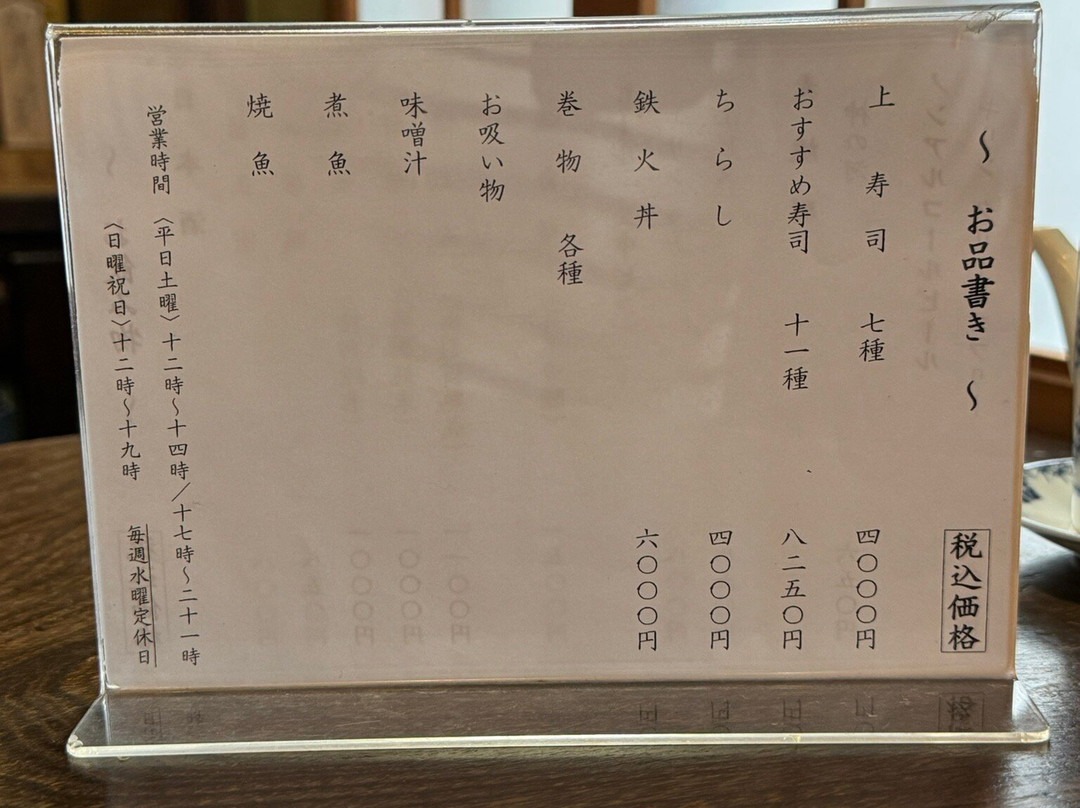 〜 お品書き 〜 税込価格
上寿司 七種 四〇〇〇円
おすすめ寿司 十一種 八二五〇円
ちらし 四〇〇〇円
鉄火丼 六〇〇〇円
巻物 各種
お吸い物
味噌汁
煮魚
焼魚
営業時間 〈平日土曜〉十二時〜十四時/十七時〜二十一時
〈日曜祝日〉十二時〜十九時 毎週水曜定休日